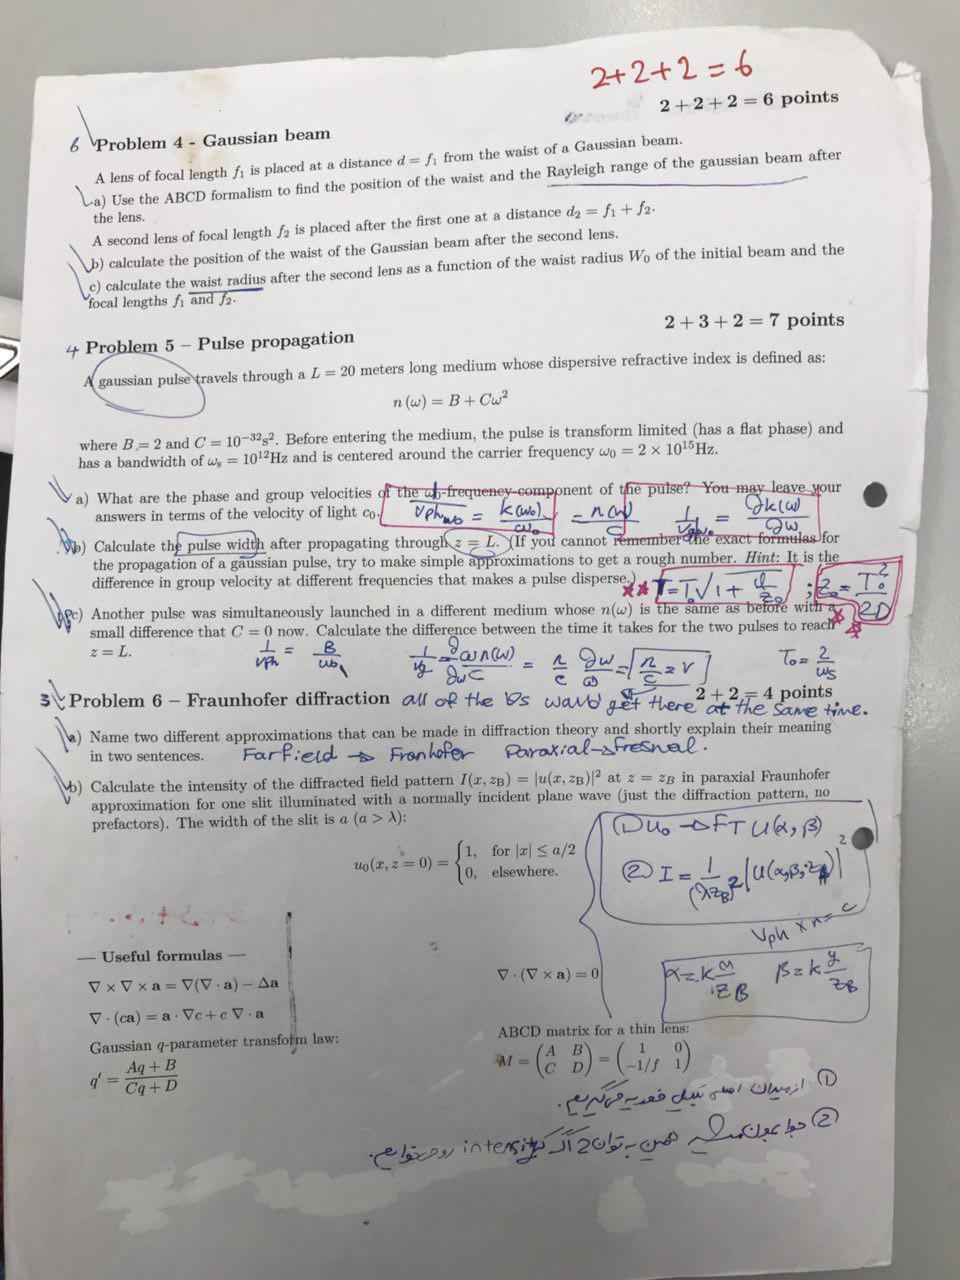 2+2+2 = 6
2 + 2 + 2 = 6 points
6 Problem 4 - Gaussian beam
A lens of focal length f₁ is placed at a distance d = f₁ from the waist of a Gaussian beam.
a) Use the ABCD formalism to find the position of the waist and the Rayleigh range of the gaussian beam after
the lens.
A second lens of focal length f₂ is placed after the first one at a distance d₂ = f₁ + f₂.
b) calculate the position of the waist of the Gaussian beam after the second lens.
c) calculate the waist radius after the second lens as a function of the waist radius W₀ of the initial beam and the
focal lengths f₁ and f₂.
2 + 3 + 2 = 7 points
4 Problem 5 – Pulse propagation
A gaussian pulse travels through a L = 20 meters long medium whose dispersive refractive index is defined as:
n (ω) = B + Cω²
where B = 2 and C = 10⁻³²s². Before entering the medium, the pulse is transform limited (has a flat phase) and
has a bandwidth of ωₛ = 10¹²Hz and is centered around the carrier frequency ω₀ = 2 × 10¹⁵Hz.
a) What are the phase and group velocities of the ω₀-frequency-component of the pulse? You may leave your
answers in terms of the velocity of light c₀.
b) Calculate the pulse width after propagating through z = L. (If you cannot remember the exact formulas for
the propagation of a gaussian pulse, try to make simple approximations to get a rough number. Hint: It is the
difference in group velocity at different frequencies that makes a pulse disperse.)
; z₀ = T₀²/2D
c) Another pulse was simultaneously launched in a different medium whose n(ω) is the same as before with a
small difference that C = 0 now. Calculate the difference between the time it takes for the two pulses to reach
z = L.
T₀ = 2/ωs
3 Problem 6 – Fraunhofer diffraction
2 + 2 = 4 points
all of the would get there at the same time.
a) Name two different approximations that can be made in diffraction theory and shortly explain their meaning
in two sentences.
Farfield → Franhofer Paraxial → Fresnel.
b) Calculate the intensity of the diffracted field pattern I(x, z_B) = |u(x, z_B)|² at z = z_B in paraxial Fraunhofer
approximation for one slit illuminated with a normally incident plane wave (just the diffraction pattern, no
prefactors). The width of the slit is a (a > λ):
u₀(x, z = 0) = {1, for |x| ≤ a/2
0, elsewhere.
① u₀ → FT U(α, β)
② I = 1/(λz_B)² |U(α, β, z_B)|²
Vph × n = c
α = k x/z_B β = k y/z_B
— Useful formulas —
∇ × ∇ × a = ∇(∇ · a) − Δa
∇ · (∇ × a) = 0
∇ · (ca) = a · ∇c + c ∇ · a
Gaussian q-parameter transform law:
q′ = Aq + B / Cq + D
ABCD matrix for a thin lens:
M = (A B C D) = (1 0 −1/f 1)